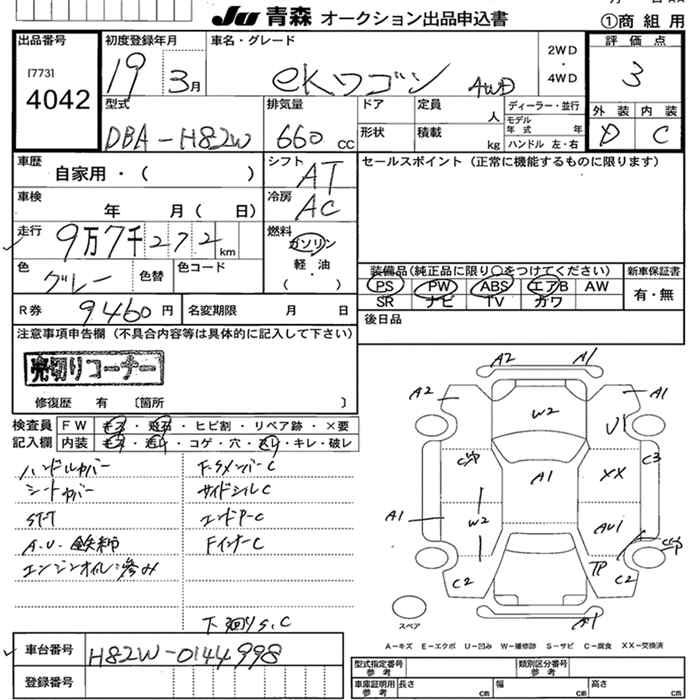 JU 青森 オークション出品申込書
①商 組 用
出品番号
[773]
4042
初度登録年月
19
3月
車名・グレード
eKワゴン 4WD
2WD
・
4WD
評価点
3
外装 内装
D C
型式
DBA-H82W
排気量
660 CC
ドア
定員
人
ディーラー・並行
形状
積載
kg
モデル年式 年
ハンドル 左・右
車歴
自家用・( )
シフト
AT
セールスポイント(正常に機能するものに限ります)
車検
年 月( 日)
冷房
AC
走行
9万7千272 km
燃料
ガソリン
軽・油
・( )
色
グレー
色替
色コード
装備品(純正品に限り○をつけてください)
新車保証書
PS PW ABS エアB AW
有・無
SR ナビ TV カワ
R券
9460円
名変期限 月 日
後日品
注意事項申告欄(不具合内容等は具体的に記入して下さい)
売切りコーナー
修復歴 有 〔箇所 〕
検査員
記入欄
FW キズ・飛石・ヒビ割・リペア跡・×要
内装 キズ・汚れ・コゲ・穴・スレ・キレ・破レ
ハンドルカバー
F.Sメンバー C
シートカバー
サイドシル C
ST.T
エンドアー C
A.U.鉄粉
Fインナー C
エンジンオイル滲み
下廻りS.C
車台番号
H82W-0144998
登録番号
A2 A1
A2 A1
W2
U1
C3
A1
XX
A1
W2
AU1
C2
TP
C2
A1
スペア
A-キズ E-エクボ U-凹み W-補修跡 S-サビ C-腐食 XX-交換済
型式指定番号
参考
類別区分番号
参考
車庫証明用
参考
長さ cm
幅 cm
高さ cm